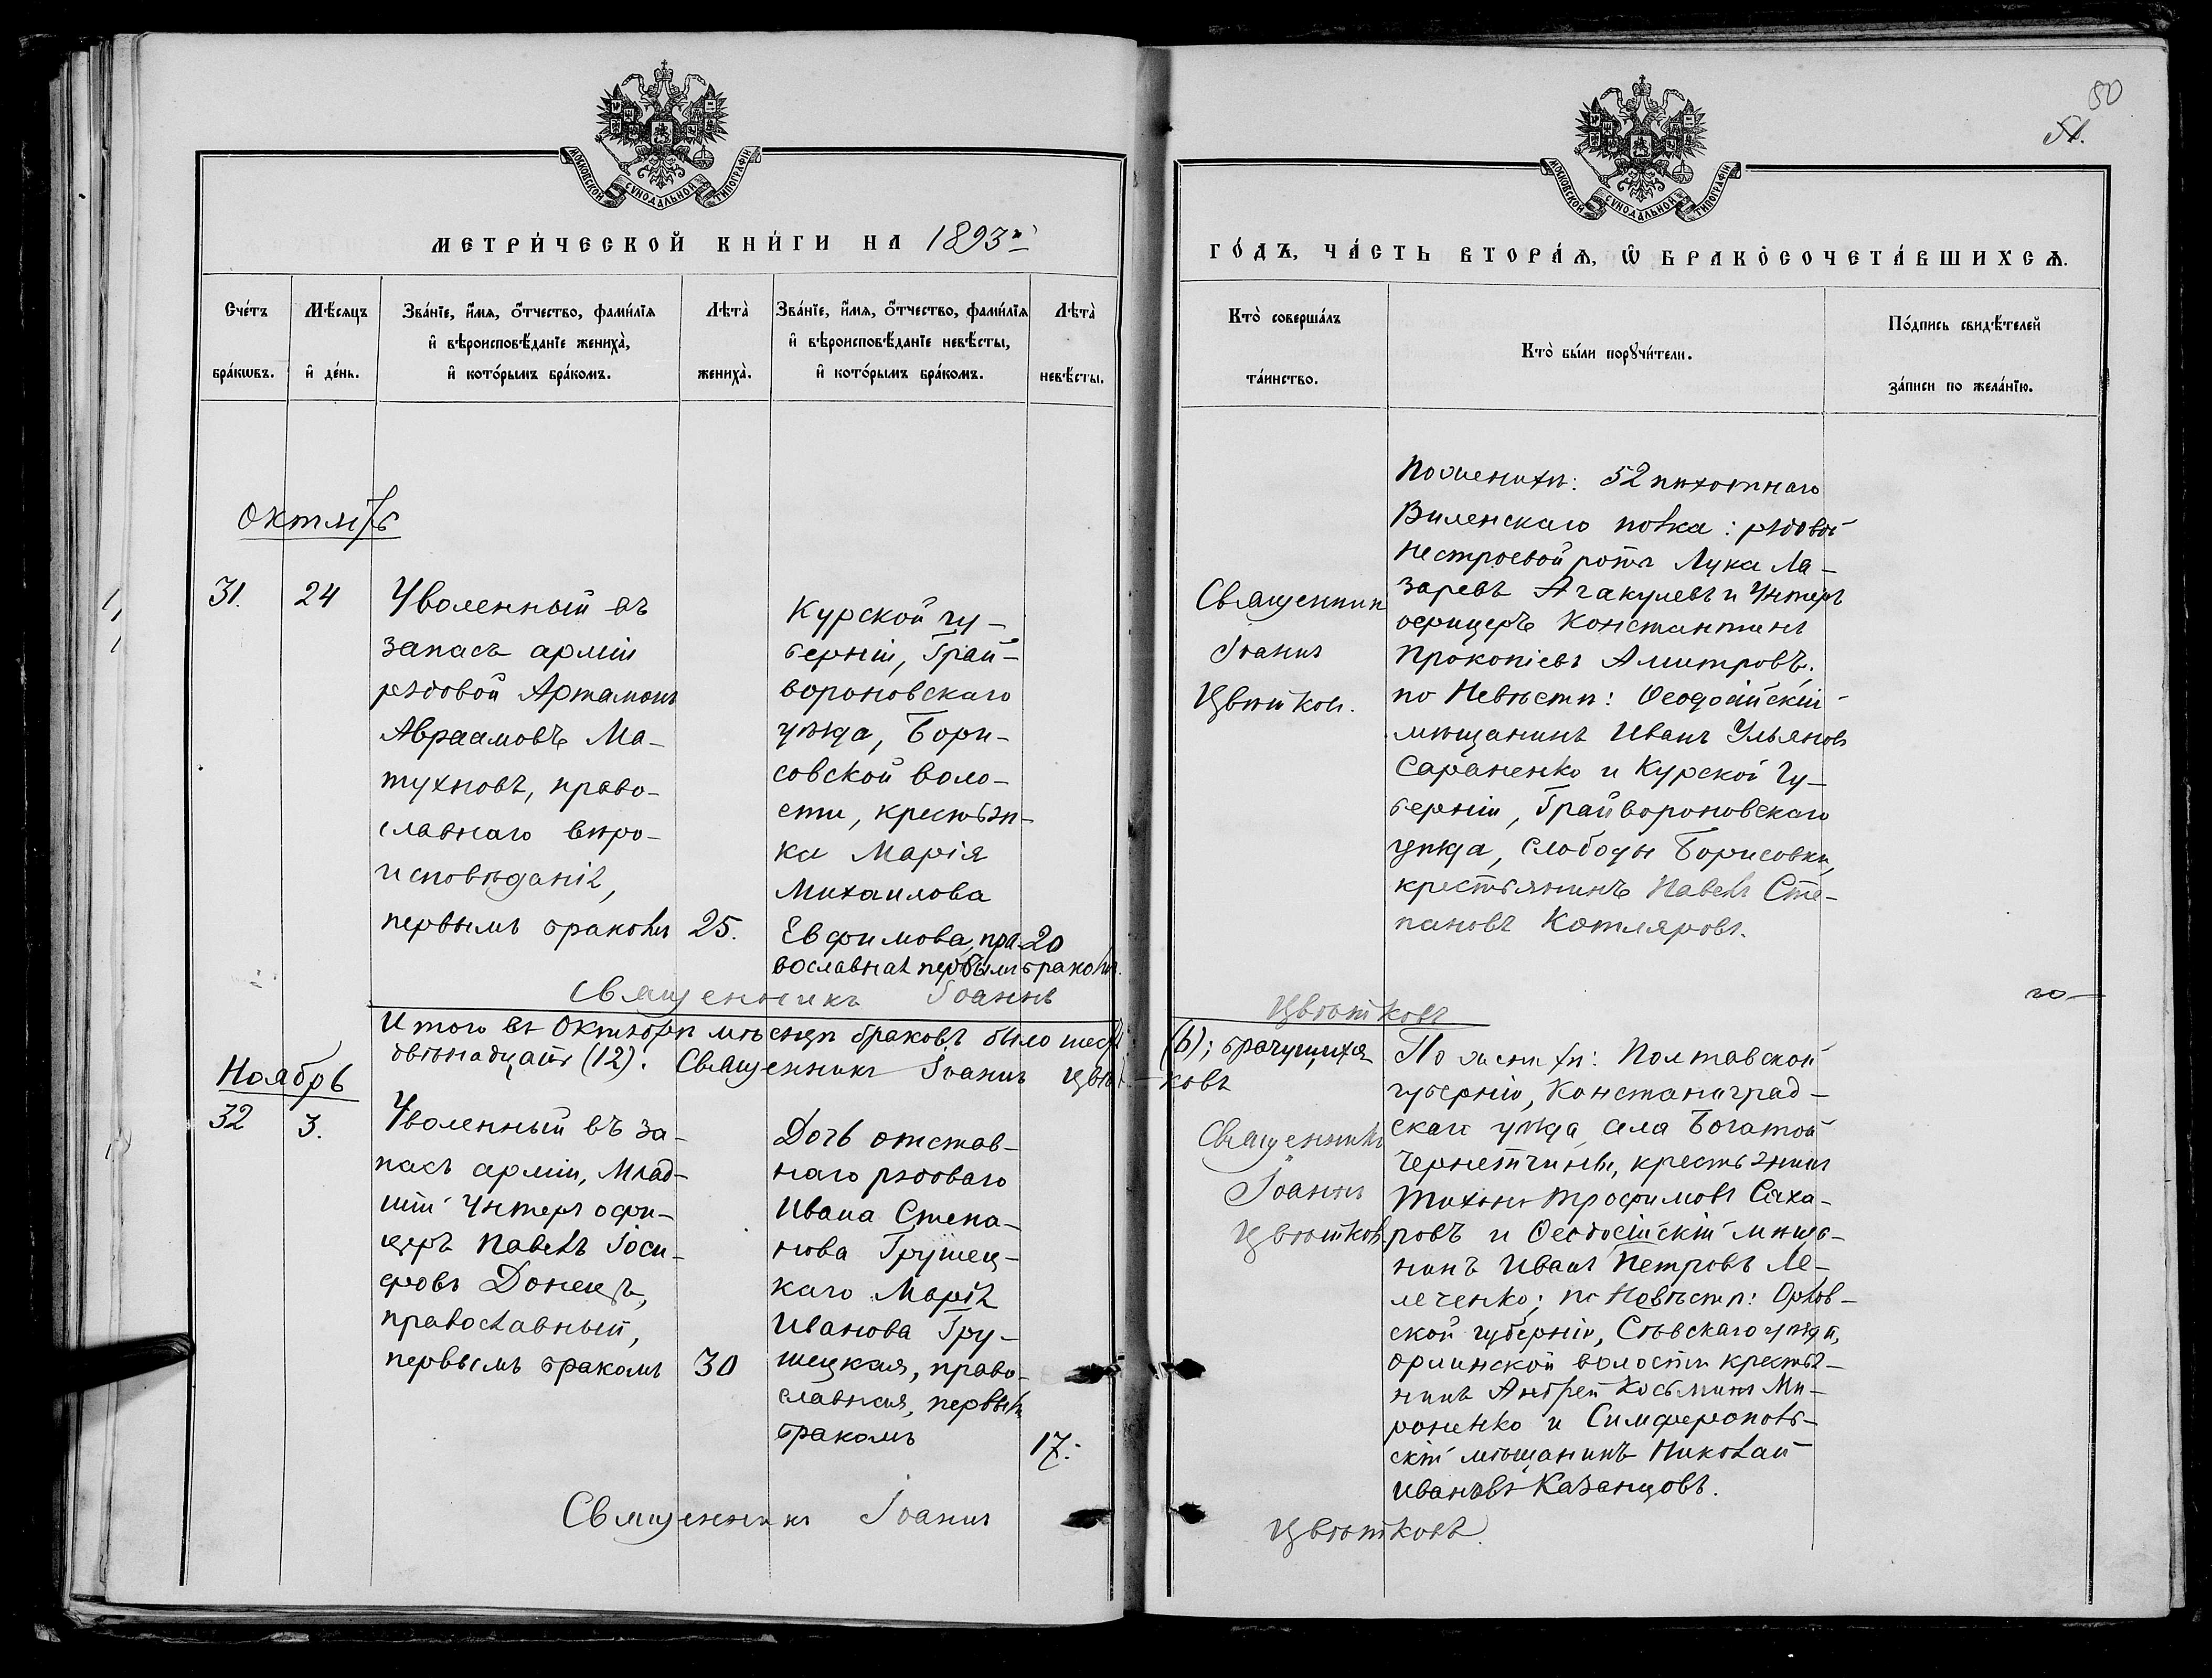 МОСКОВСКОЙ СѴНОДАЛЬНОЙ ТИПОГРАФІИ
МЕТРИ́ЧЕСКОЙ КНИ́ГИ НА 1893 г.
Сче́тъ бра́кѡвъ.
Мѣ́сяцъ и҆ де́нь.
Зва́нїе, и҆́мѧ, ѻ҆́тчество, фами́лїѧ
и҆ вѣроисповѣ́данїе жениха̀,
и҆ кото́рымъ бра́комъ.
Лѣта̀ жениха̀.
Зва́нїе, и҆́мѧ, ѻ҆́тчество, фами́лїѧ
и҆ вѣроисповѣ́данїе невѣ́сты,
и҆ кото́рымъ бра́комъ.
Лѣта̀ невѣ́сты.
Октябрь
31.
24
Уволенный въ
запасъ арміи
рядовой Артамонъ
Авраамовъ Ма-
тухновъ, право-
славнаго веро-
исповѣданія,
первымъ бракомъ
25.
Курской гу-
берніи, Грай-
вороновскаго
уѣзда, Бори-
совской воло-
сти, крестьян-
ка Марія
Михаилова
Евфимова, пра-
вославная первымъ бракомъ.
20
Священникъ Іоаннъ
Итого въ Октябрѣ мѣсяцѣ браковъ было шесть
двѣнадцать (12). Священникъ Іоаннъ Цвѣт-
Ноябрь
32
3.
Уволенный въ за-
пасъ арміи, Млад-
шій Унтеръ офи-
церъ Павелъ Іоси-
фовъ Донецъ,
православный,
первымъ бракомъ
30
Дочь отстав-
наго рядоваго
Ивана Степа-
нова Грушец-
каго Марія
Иванова Гру-
шецкая, право-
славная, первымъ
бракомъ
17.
Священникъ Іоаннъ
50
51.
МОСКОВСКОЙ СѴНОДАЛЬНОЙ ТИПОГРАФІИ
ГО́ДЪ, ЧА́СТЬ ВТОРА́Ѧ, Ѡ҆ БРАКОСОЧЕТА́ВШИХСѦ.
Кто̀ соверша́лъ
та́инство.
Кто̀ бы́ли порꙋчи́тели.
По́дпись свидѣ́телей
за́писи по жела́нїю.
Священник
Іоаннъ
Цвѣтков.
По женихѣ: 52 пѣхотнаго
Виленскаго полка: рядовой
нестроевой роты Лука Ла-
заревъ Агакулевъ и Унтеръ
офицеръ Константинъ
Прокопіевъ Амитровъ.
по Невѣстѣ: Ѳеодосійскій
мѣщанинъ Иванъ Ульяновъ
Сараненко и Курской Гу-
берніи, Грайвороновскаго
уѣзда, Слободы Борисовки,
крестьянинъ Павелъ Сте-
пановъ Котляровъ.
Цвѣтковъ
(6); брачущихся
ковъ
Священникъ
Іоаннъ
Цвѣтков
По женихѣ: Полтавской
губерніи, Констаниград-
скаго уѣзда, села Богатой
Чернетчины, крестьянинъ
Тихонъ Трофимовъ Саха-
ровъ и Ѳеодосійскій мѣща-
нинъ Иванъ Петровъ Ле-
леченко; по Невѣстѣ: Орлов-
ской губерніи, Сѣвскаго уѣзда,
орлинской волости крестья-
нинъ Андрей Косьминъ Ми-
роненко и Симферополь-
скій мѣщанинъ Николай
Ивановъ Казанцовъ.
Цвѣтковъ.